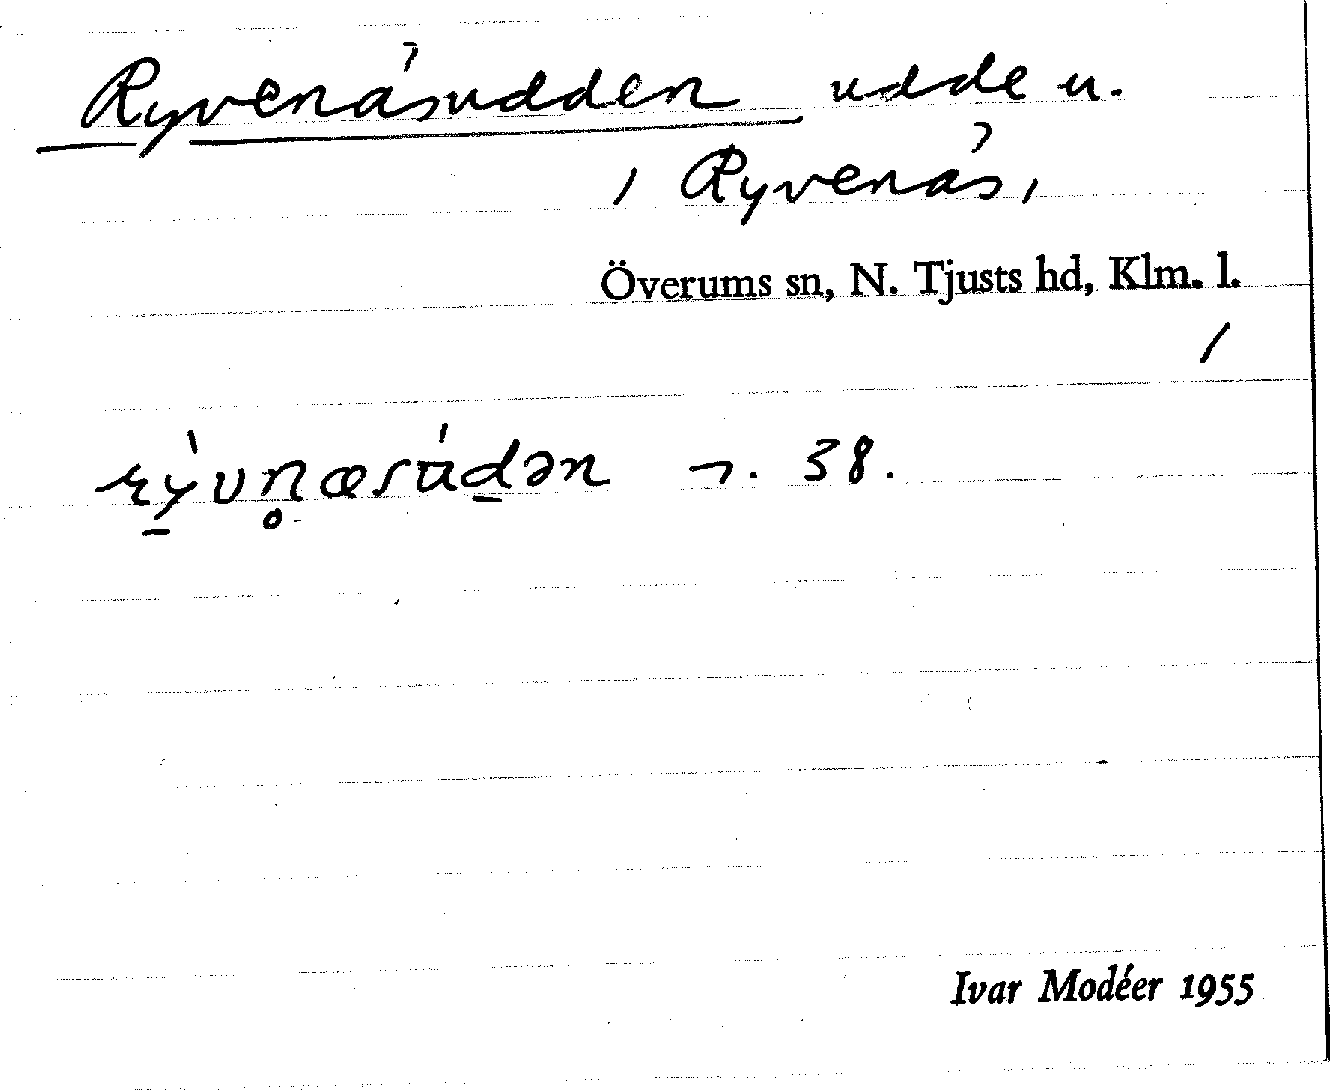 Ryvenäsudden udde u.
/ Ryvenäs /
Överums sn, N. Tjusts hd, Klm. l.
/
38.
Ivar Modéer 1955